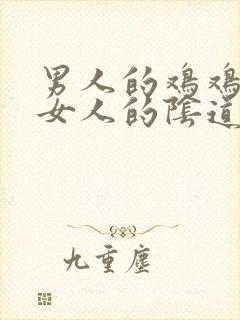 男人的鸡鸡
女人的陰道
九重塵